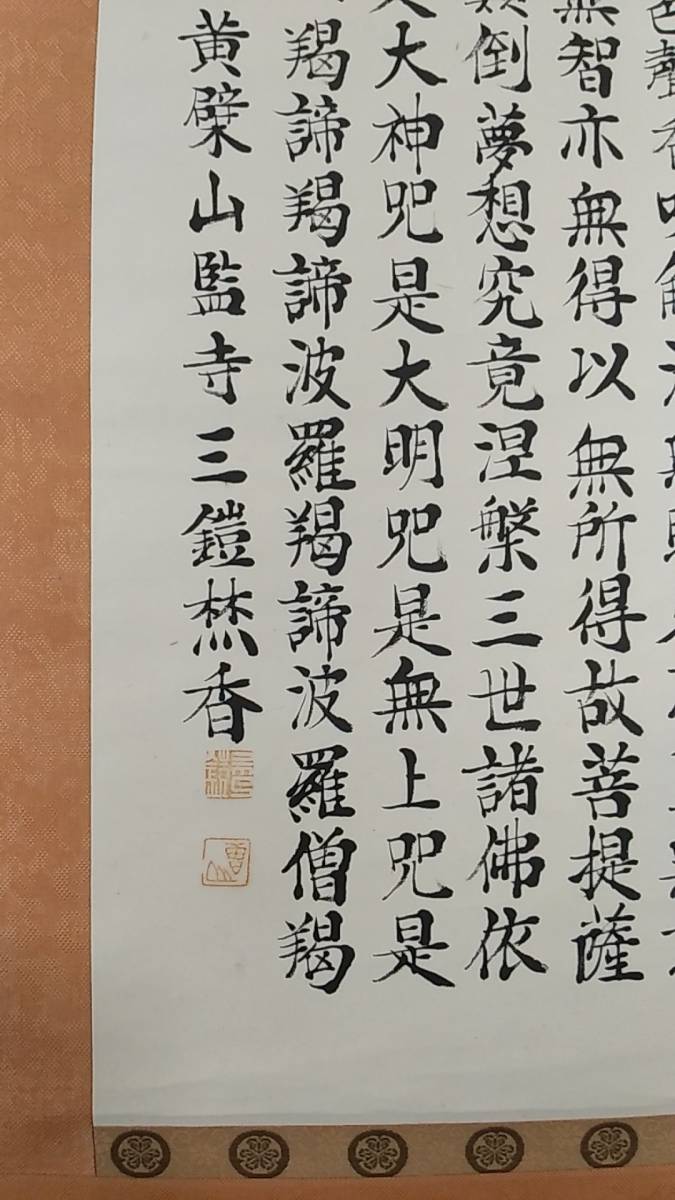 色聲香味
無智亦無得以無所得故菩提薩
倒夢想究竟涅槃三世諸佛依
大神咒是大明咒是無上咒是
羯諦羯諦波羅羯諦波羅僧羯
黃檗山監寺三鎧焚香